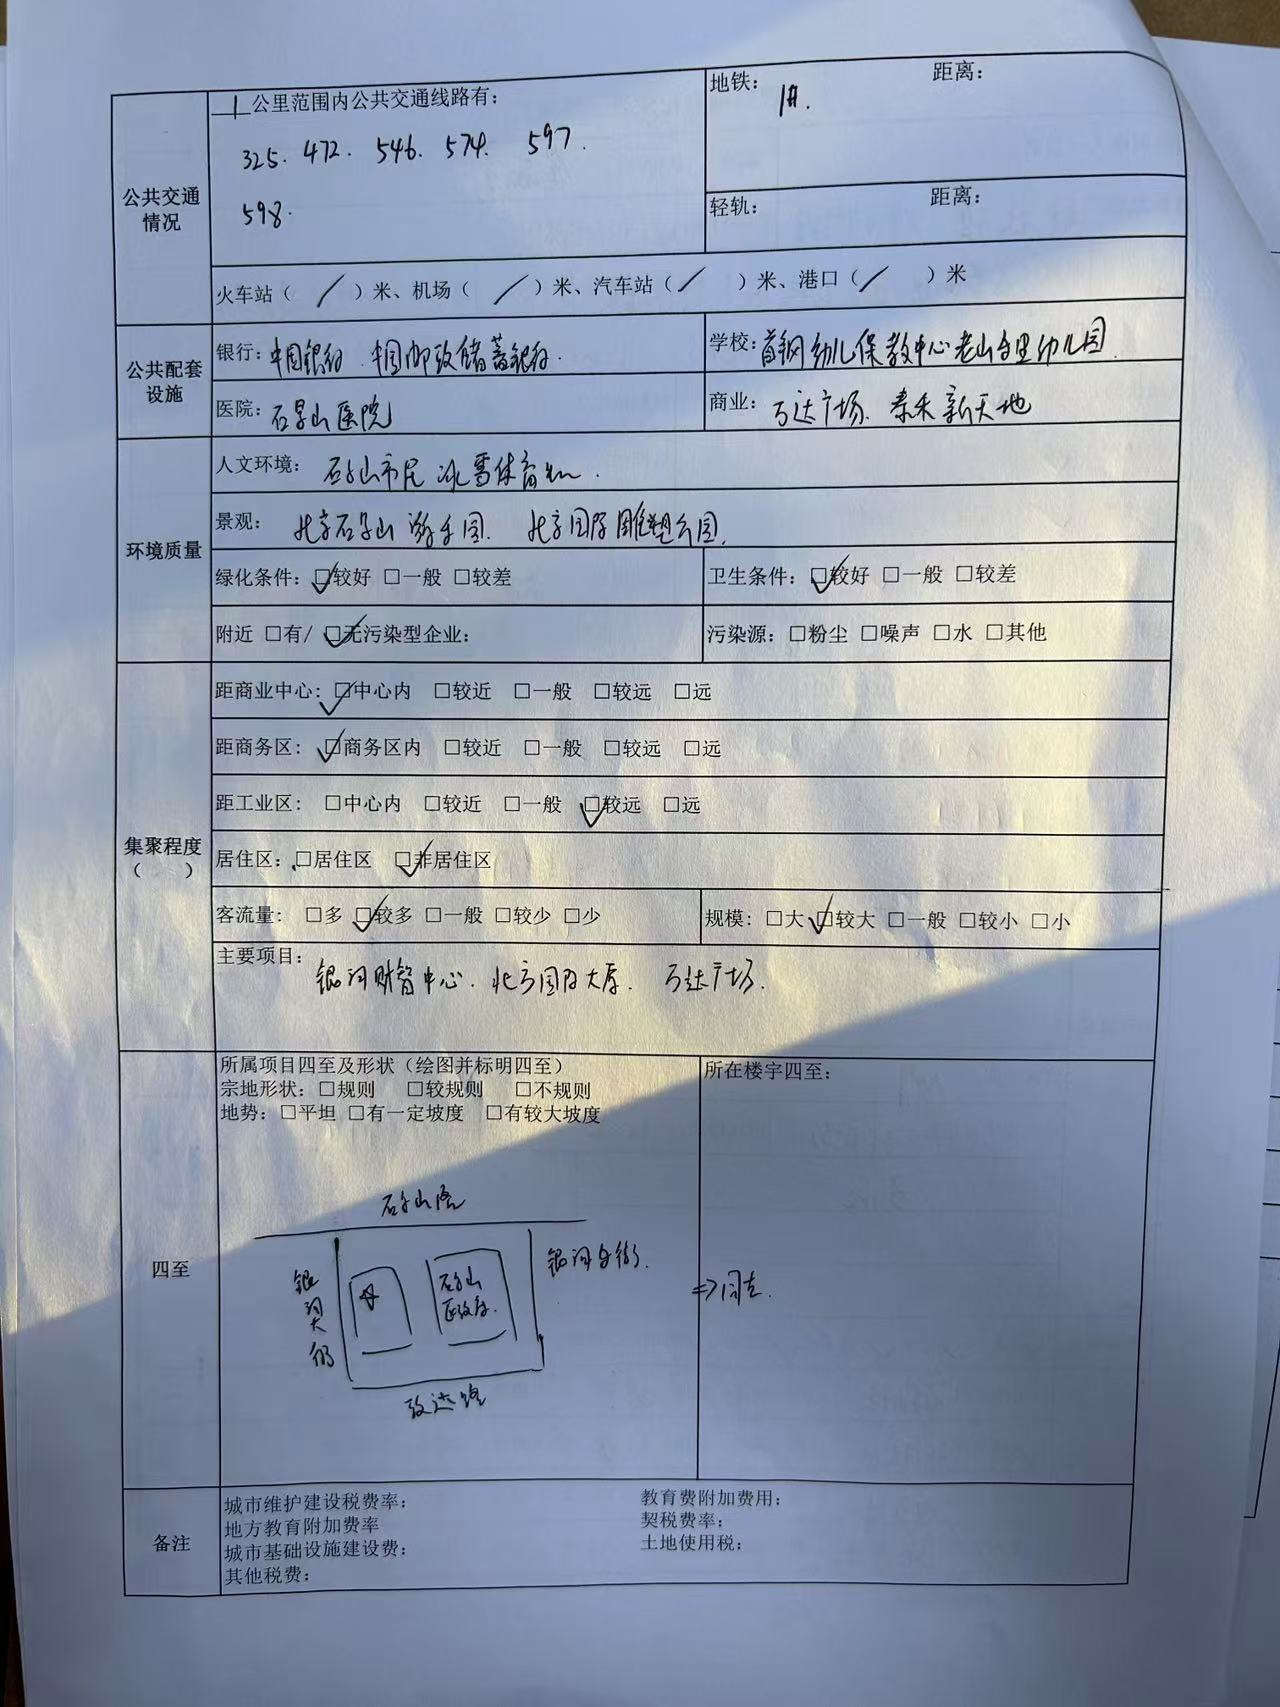 1 公里范围内公共交通线路有：
325. 472. 546. 574. 597.
598.
地铁： 距离：
1#.
轻轨： 距离：
公共交通
情况
火车站（ / ）米、机场（ / ）米、汽车站（ / ）米、港口（ / ）米
公共配套
设施
银行：中国银行 中国邮政储蓄银行.
学校：首钢幼儿保教中心老山东里幼儿园
医院：石景山医院
商业：万达广场. 泰禾新天地
环境质量
人文环境：石景山市民冰雪体育中心.
景观：北京石景山游乐园. 北京国际雕塑公园.
绿化条件：☑较好 □一般 □较差
卫生条件：☑较好 □一般 □较差
附近 □有/ ☑无污染型企业：
污染源：□粉尘 □噪声 □水 □其他
集聚程度
（ ）
距商业中心：☑中心内 □较近 □一般 □较远 □远
距商务区：☑商务区内 □较近 □一般 □较远 □远
距工业区：□中心内 □较近 □一般 ☑较远 □远
居住区：□居住区 ☑非居住区
客流量：□多 ☑较多 □一般 □较少 □少
规模：□大 ☑较大 □一般 □较小 □小
主要项目：
银河财智中心. 北方国际大厦. 万达广场.
四至
所属项目四至及形状（绘图并标明四至）
宗地形状：□规则 □较规则 □不规则
地势：□平坦 □有一定坡度 □有较大坡度
石景山路
银河大街
石景山
区政府.
银河东街.
政达路
所在楼宇四至：
=>同左.
备注
城市维护建设税费率：
地方教育附加费率
城市基础设施建设费：
其他税费：
教育费附加费用：
契税费率：
土地使用税：